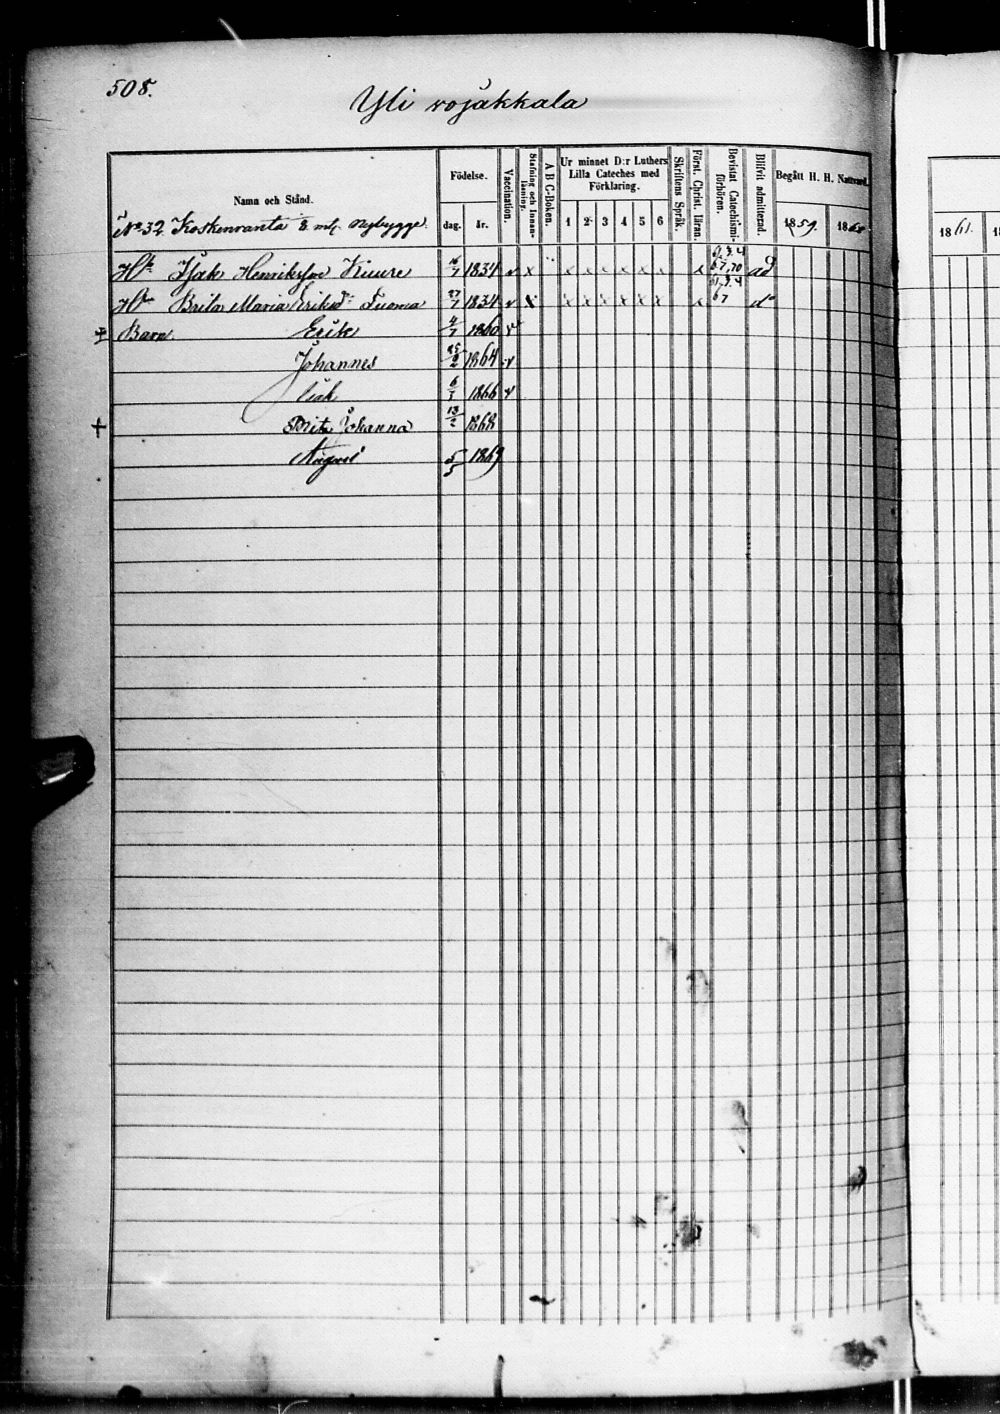 508.
Yli vojakkala
Namn och Stånd.
Födelse.
dag. år.
Vaccination.
Stafning och Innanläsning.
A B C-Boken.
Ur minnet D:r Luthers Lilla Cateches med Förklaring.
1 2 3 4 5 6
Skriftens Språk.
Först. Christ. läran.
Bevistat Catechismiförhören.
Blifvit admitterad.
Begått H. H. Nattvard.
1859. 1860
1861.
No 32. Koskenranta nybygge.
Isak Henriksson Kuure 16/7 1834 v x x x x x x x x 67, 70 ad
Brita Maria Eriksdr Tuoma 27/7 1834 v x x x x x x x x 67 do
+ Barn Erik 4/7 1860 v
Johannes 25/2 1864 v
Isak 6/1 1866 v
+ Brita Johanna 13/2 1868
August 5/5 1869